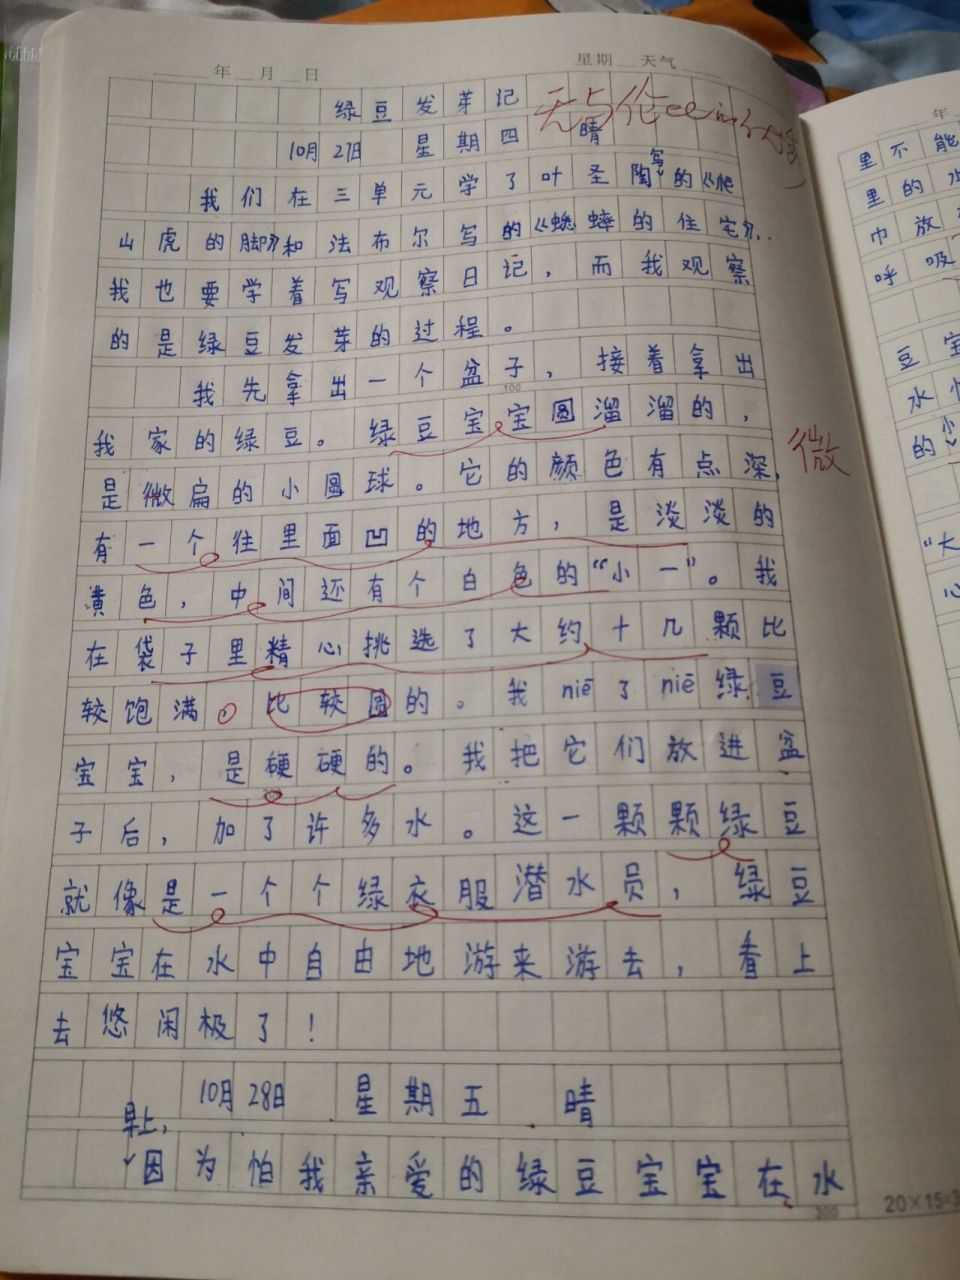 年 月 日 星期 天气
绿豆发芽记
10月27日 星期四 晴
我们在三单元学了叶圣陶写的《爬
山虎的脚》和法布尔写的《蟋蟀的住宅》,
我也要学着写观察日记,而我观察
的是绿豆发芽的过程。
我先拿出一个盆子,接着拿出
100
我家的绿豆。绿豆宝宝圆溜溜的,
是微扁的小圆球。它的颜色有点深,
微
有一个往里面凹的地方,是淡淡的
黄色,中间还有个白色的“小一”。我
在袋子里精心挑选了大约十几颗比
较饱满,比较圆的。我niē了niē绿豆
宝宝,是硬硬的。我把它们放进盆
子后,加了许多水。这一颗颗绿豆
就像是一个个绿衣服潜水员,绿豆
宝宝在水中自由地游来游去,看上
去悠闲极了!
10月28日 星期五 晴
早上,
因为怕我亲爱的绿豆宝宝在水
300
20×15=3
年
里不能
里的水
巾放
呼吸
豆宝
水
的小
“大
心